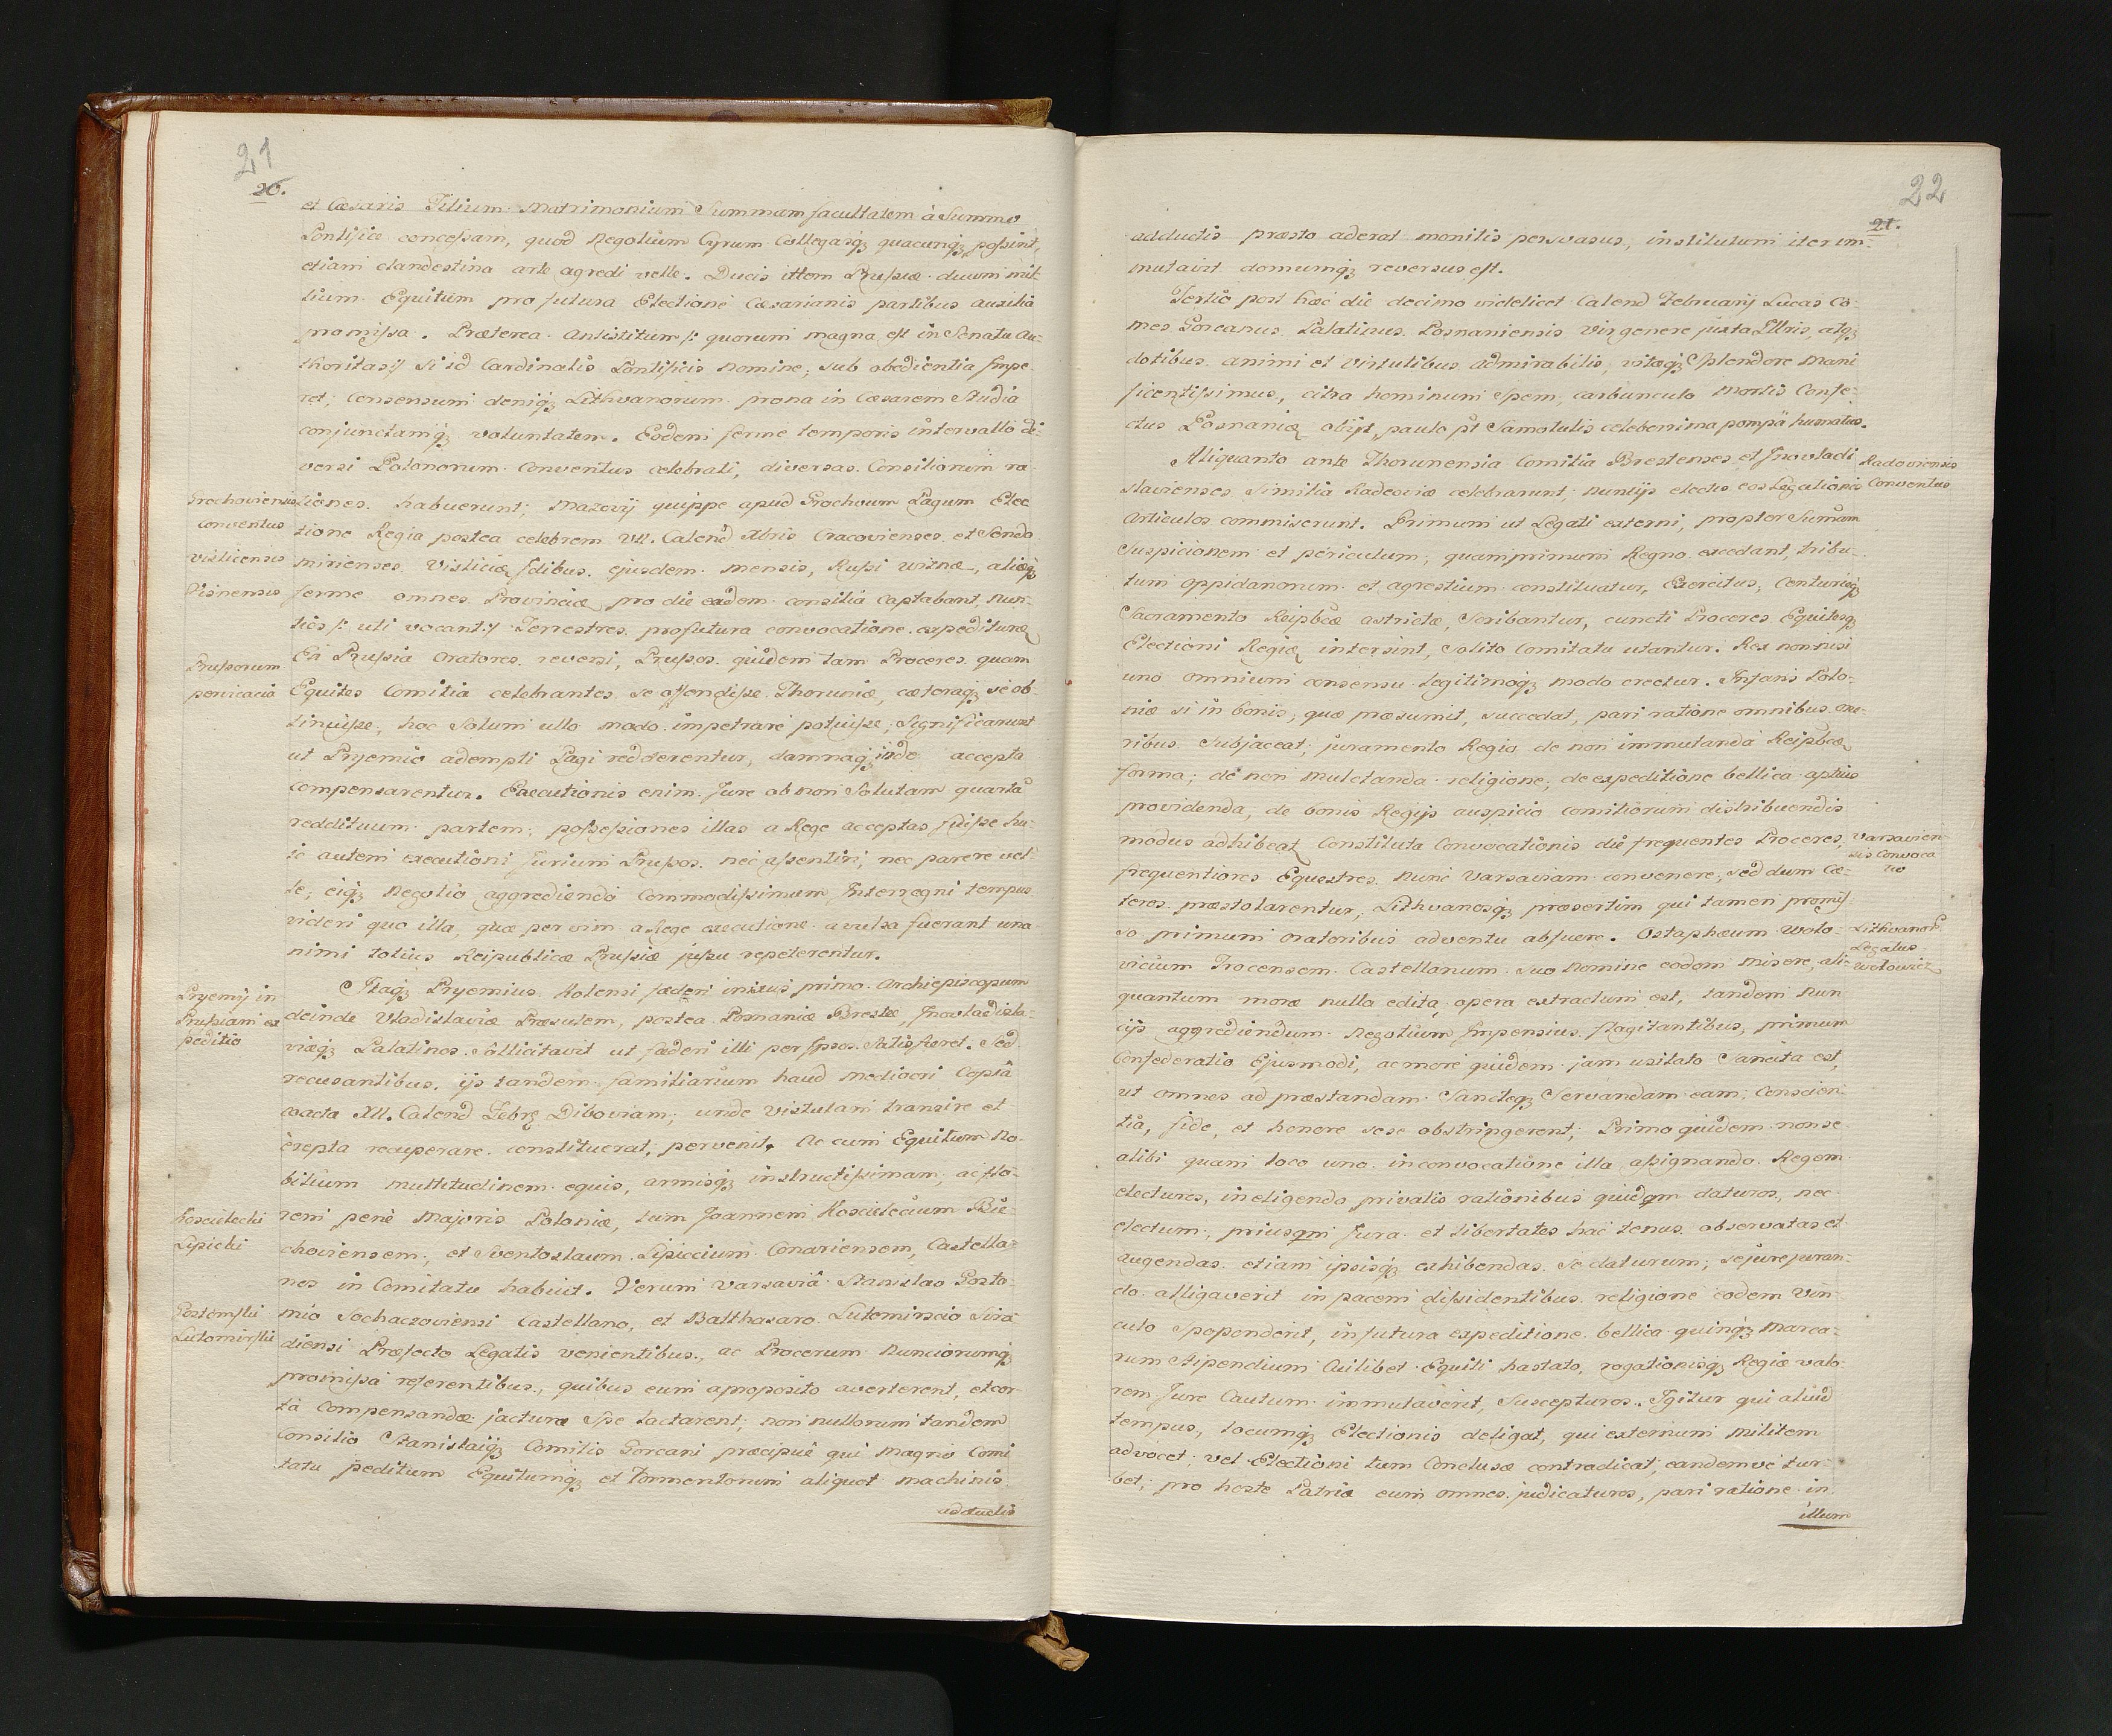 21
20.
et Cæsaris Filium Matrimonium Summam facultatem à Summo
Pontifice concessam, quod Negotium Cyrum Collegasq quacunq possint,
etiam clandestina arte agredi velle. Ducis ittem Prussiæ duum mil-
lium Equitum pro futura Electione Cæsarianis partibus auxilia
promissa. Præterea Antistitum /: quorum magna est in Senatu Au-
thoritas :/ Si id Cardinalis Pontificis nomine, sub obedientia Impe
ret; Consensum deniq Lithvanorum prona in Cæsarem Studia
conjunctamq voluntatem. Eodem ferme temporis intervallo di-
versi Polonorum Conventus celebrati, diversas Consiliorum ra
Grochoviensis
Conventus
tiones habuerunt; Mazovij quippe apud Grochvum Pagum Elec
tione Regia postea celebrem VII. Calend Xbris Cracovienses et Sendo
Visticensis
mirienses Visticiæ Idibus ejusdem mensis, Russi Visnæ, aliæq
Visnensis
ferme omnes Provinciæ pro die eadem consilia captabant, Nun-
tios /: uti vocant :/ Terrestres pro futura convocatione expedituræ
Prussorum
pervicacia
Ex Prussia Oratores reversi, Prussos quidem tam Proceres quam
Equites Comitia celebrantes se offendisse Thoruniæ, cæteraq se ob-
tinuisse, hoc Solum ullo modo impetrare potuisse; Significarunt
ut Pryemio adempti Pagi redderentur, damnaq inde accepta
compensarentur. Executionis enim Jure ob non Solutam quarta
reddituum partem, possessiones illas a Rege acceptas fuisse hu-
ic autem executioni Jurium Prussos nec assentiri, nec parere vel-
le; eiq Negotio aggrediendo Commodissimum Interregni tempus
videri quo illa, quæ per vim a Rege executione avulsa fuerant una
nimi totius Reipublicæ Prussiæ jussu repeterentur.
Pryemij in
Prussiam ex
peditio
Itaq Pryemius Kolensi fæderi inixus primo Archiepiscopum
deinde Vladislaviæ Præsulem, postea Posnaniæ Brestæ, Jnovladisla-
viæq Palatinos Sollicitavit ut fæderi illi per Ipsos Satisfieret. Sed
recusantibus ijs tandem familiarium haud mediocri Copiâ
coacta XII. Calend Febrs Diboviam, unde Vistulam transire et
erepta recuperare constituerat, pervenit. Ac cum Equitum No-
bilium multitudinem equis, armisq instructissimam, ac flo-
Koscielecki
Lipicki
rem penè Majoris Poloniæ, tum Joannem Koscielecium Bie-
choviensem, et Sventoslaum Lipiccium Conariensem, Castella-
nos in Comitatu habuit. Verum Varsaviâ Stanislao Gosto-
Gostomski
Lutomirski
mio Sochaczoviensi Castellano, et Balthasaro Lutomirscio Sira
diensi Præfecto Legatis venientibus, ac Procerum Nunciorumq
promissa referentibus, quibus eum a proposito averterent, et cer-
tâ Compensandæ jacturæ Spe lactarent; non nullorum tandem
Consilio Stanislaiq Comitis Gorcani præcipuè qui magno Comi
tatu peditum Equitumq et Tormentorum aliquot machinis
adductis
22
21.
adductis præsto aderat monitis persvasus, institutum iter im-
mutavit domumq reversus est.
Tertio post hæc die decimo videlicet Calend Februarij Lucas Co-
mes Gorcanus Palatinus Posnaniensis Vir genere juxta Illris, atq
dotibus animi et Virtutibus admirabilis, vitæq Splendore Muni
ficentissimus, citra hominum Spem, carbunculo Mortis Confe-
ctus Posnaniæ obijt, paulo pt Samotulis celeberrima pompâ humatus.
Radoviensis
Conventus
Aliquanto ante Thorunensia Comitia Brestenses et Jnovladi
slavienses Similia Radeoviæ celebrarunt, Nuntijs electis eos Legationis
Articulos commiserunt. Primum ut Legati externi, propter Summam
Suspicionem et periculum, quamprimum Regno excedant, tribu-
tum oppidanorum et agrestium constituatur, Exercitus, Centuriæq
Sacramento Reipbcæ astrictæ, Scribantur, cuncti Proceres Equitesq
Electioni Regiæ intersint, solito Comitatu utantur. Rex non nisi
uno omnium consensu legitimoq modo creetur. Infans Polo-
niæ si in bonis, quæ præsumit, succedat, pari ratione omnibus one-
ribus Subjaceat; juramento Regio de non immutanda Reipbcæ
forma; de non mulctanda religione, de expeditione bellica aptius
providenda, de bonis Regijs auspicio comitiorum distribuendis
Varsavien
sis Convoca
tio
modus adhibeat. Constituta Convocationis die frequentes Proceres,
frequentiores Equestres Nunc Varsaviam convenere, sed dum Cæ-
teros præstolarentur, Lithvanosq præsertim qui tamen promis-
Lithvanor
Legatus
Wolowicz
so primum Oratoribus adventu abfuere. Ostaphæum Wolo-
vicium Trocensem Castellanum suo Nomine eodem misere, ali-
quantum moræ nulla edita opera extractum est, tandem Nun
cijs aggrediendum Negotium Impensius flagitantibus, primum
Confederatio Ejusmodi, ac more quidem jam usitato Sancita est,
ut omnes ad præstandam Sancteq Servandam eam, Conscien-
tiâ, fide, et honore sese obstringerent; Primo quidem non se
alibi quam loco uno in convocatione illa assignando Regem
electuros, in eligendo privatis rationibus quidqm daturos, nec
electum, priusqm Jura et libertates hac tenus observatas et
augendas etiam ipsisq exhibendas se daturum; se jurejuran-
do alligaverit in pacem dissidentibus religione eodem Vin
culo Spoponderit, in futura expeditione bellica quinq Marca-
rum Stipendium Cuilibet Equiti hastato, rogationisq Regiæ valo-
rem Jure Cautum immutaverit, Suscepturos. Igitur qui aliud
tempus, locumq Electionis deligat, qui externum Militem
advocet, vel Electioni tum Conclusæ contradicat, eandemve tur-
bet; pro hoste Patriæ eum omnes judicaturos, pari ratione in
illum